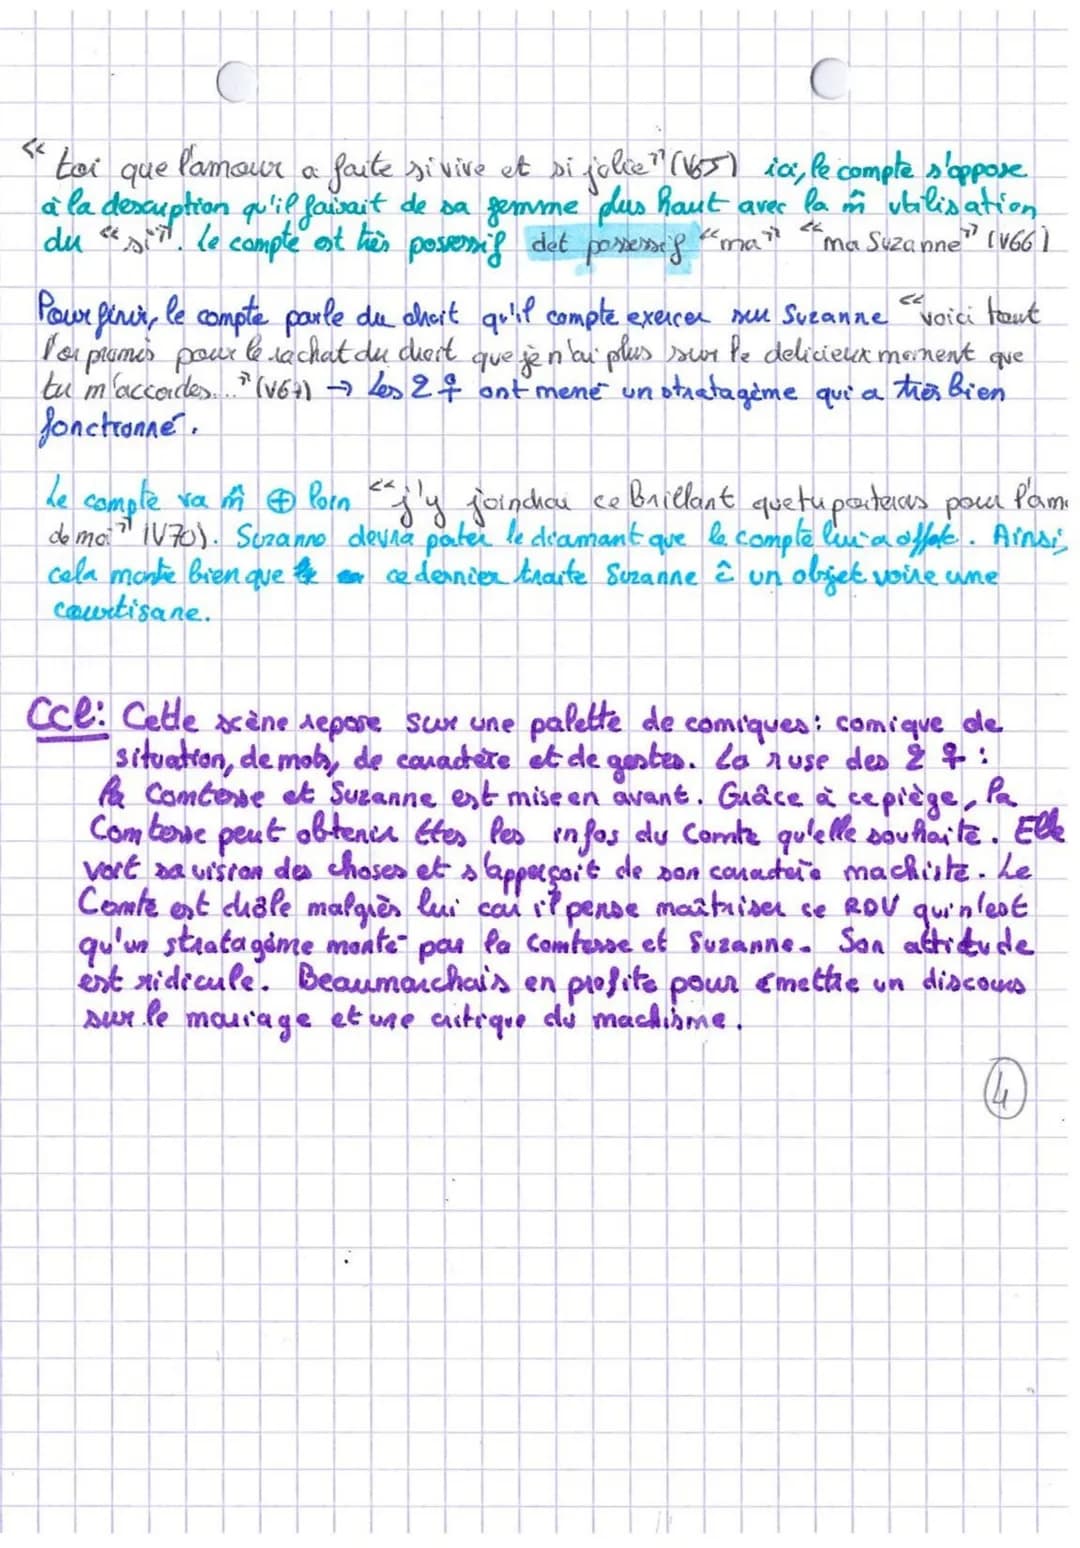 « toi que l'amour a faite si vive et si jolie » (V65) ici, le compte s'oppose
à la description qu'il faisait de sa femme plus haut avec la m̂ utilisation
du « si ». le compte est très possessif det possessif « ma » « ma Suzanne » (V66)
Pour finir, le compte parle du droit qu'il compte exercer sur Suzanne « voici tout
l'or promis pour le rachat du droit que je n'ai plus sur le delicieux moment que
tu m'accordes... » (V67) → Les 2 ♀ ont mené un stratagème qui a très bien
fonctionné.
Le compte va m̂ ⊕ loin « j'y joindrai ce Brillant que tu porteras pour l'am
de moi » (V70). Suzanne devra porter le diamant que le compte lui a offert. Ainsi,
cela montre bien que ce dernier traite Suzanne ĉ un objet voire une
courtisane.
Ccl: Cette scène repose sur une palette de comiques: comique de
situation, de mots, de caractère et de gestes. La ruse des 2 ♀ :
la Comtesse et Suzanne est mise en avant. Grâce à ce piège, la
Comtesse peut obtenir ttes les infos du Comte qu'elle souhaite. Elle
voit sa vision des choses et s'apperçoit de son caractère machiste. Le
Comte est drôle malgrès lui car il pense maîtriser ce RDV qui n'est
qu'un stratagème monté par la Comtesse et Suzanne. Son attitude
est ridicule. Beaumarchais en profite pour émettre un discours
sur le mariage et une critique du machisme.
4